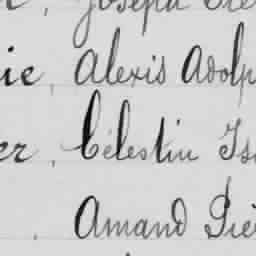 Joseph
ie, Alexis Adolp
er, Célestin Is
, Amand Pie